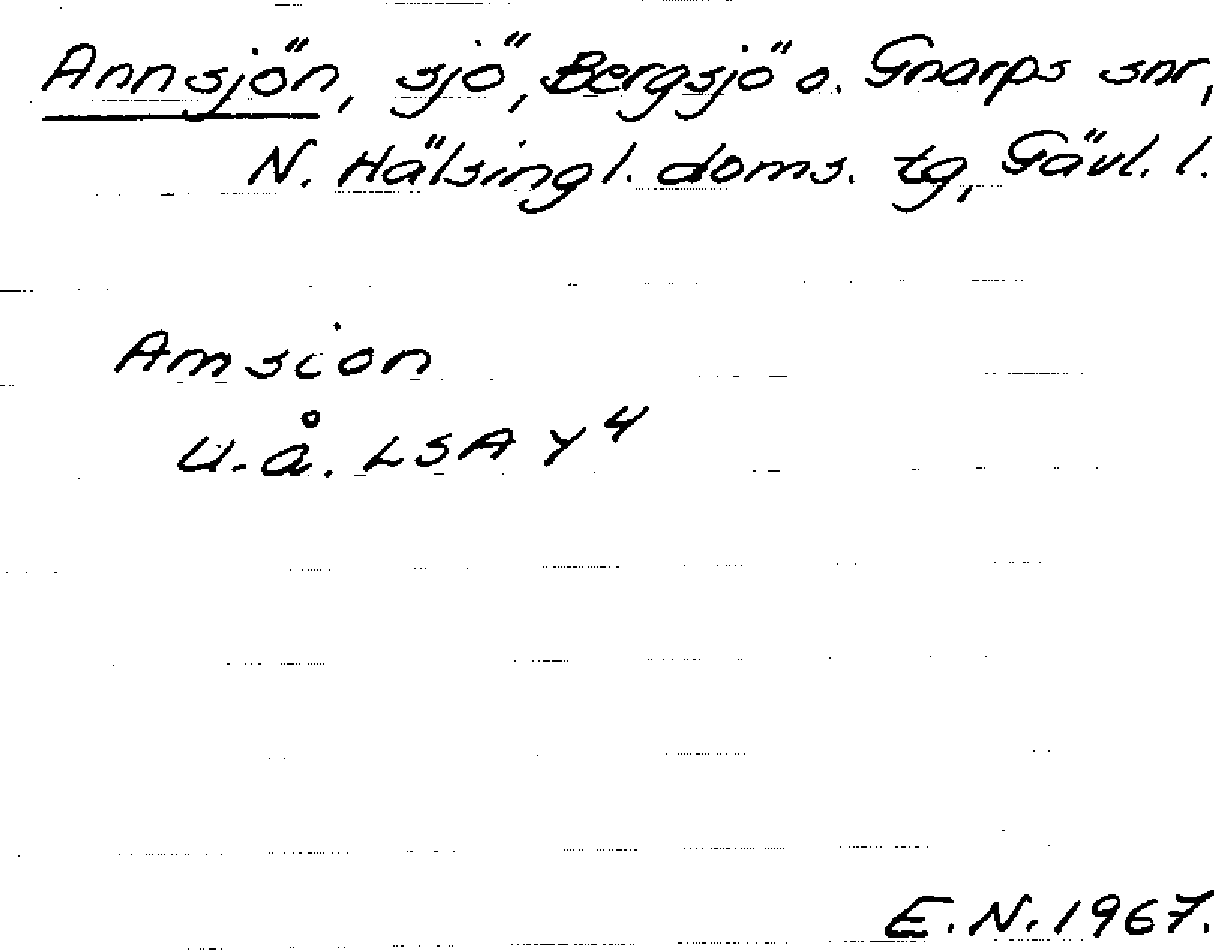 Annsjön, sjö, Bergsjö o. Gnarps snr,
N. Hälsingl. doms. tg, Gävl. l.
Amsion
U.å. LSA Y4
E.N. 1967.